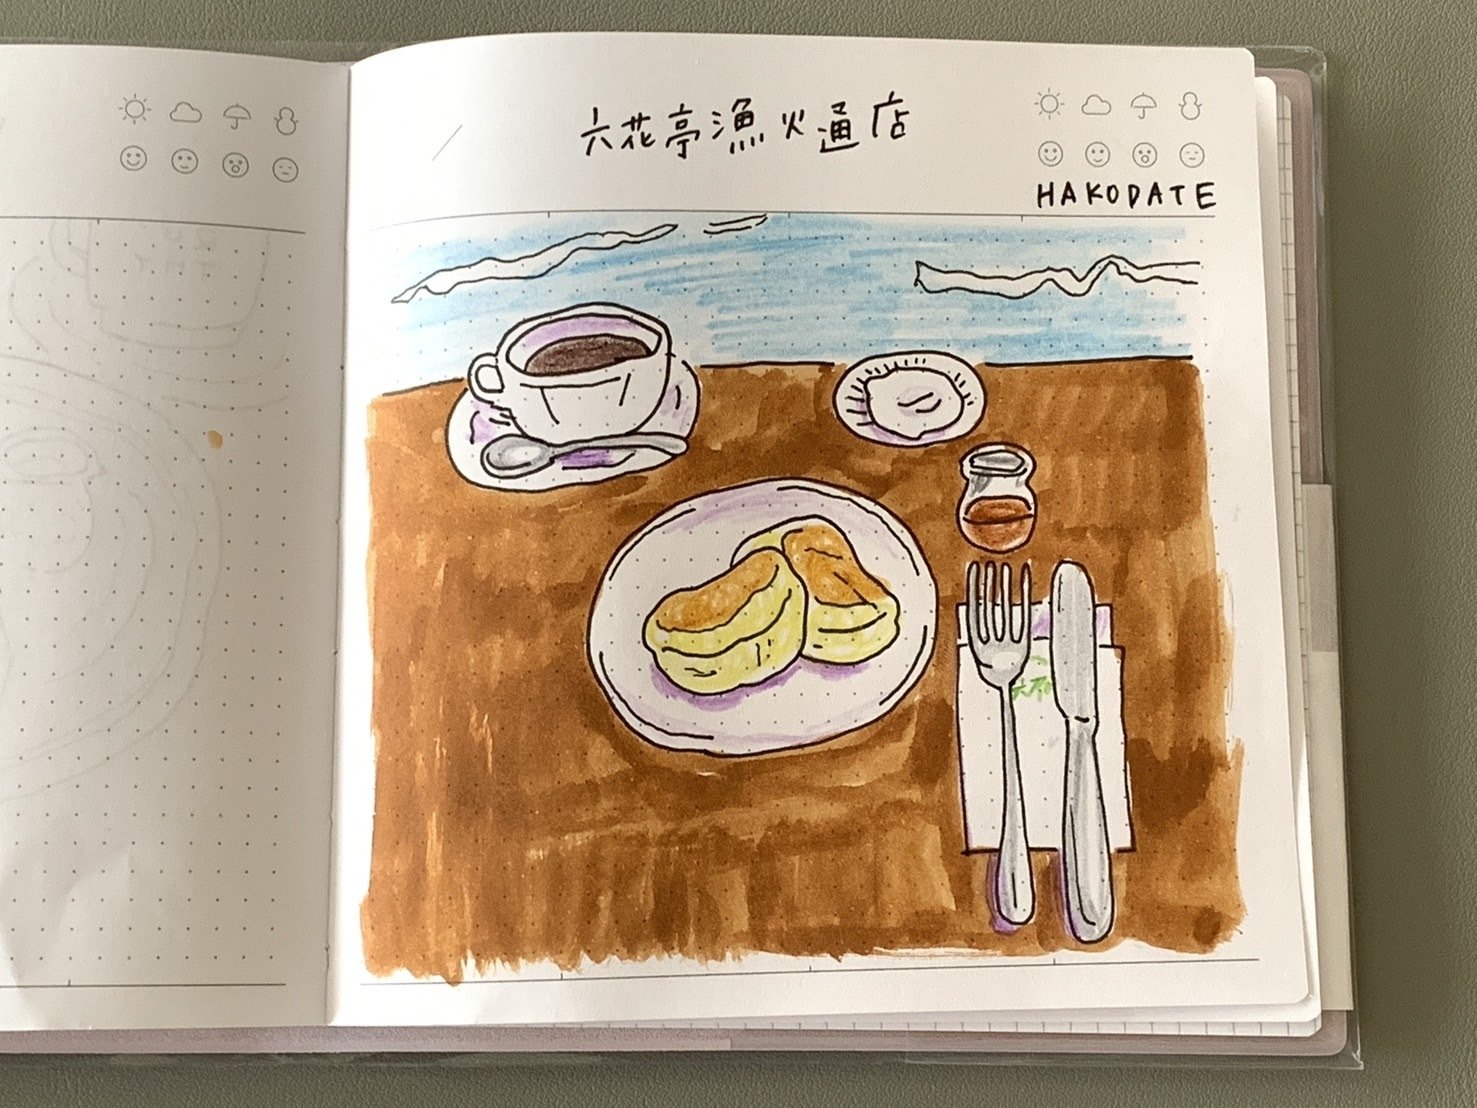 六花亭漁火通店
HAKODATE
六花